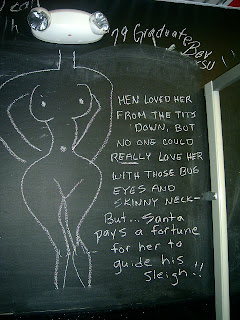 '79 Graduate
MEN LOVED HER
FROM THE TITS
DOWN, BUT
NO ONE COULD
REALLY LOVE HER
WITH THOSE BUG
EYES AND
SKINNY NECK-
But... Santa
pays a fortune
for her to
guide his
sleigh!!